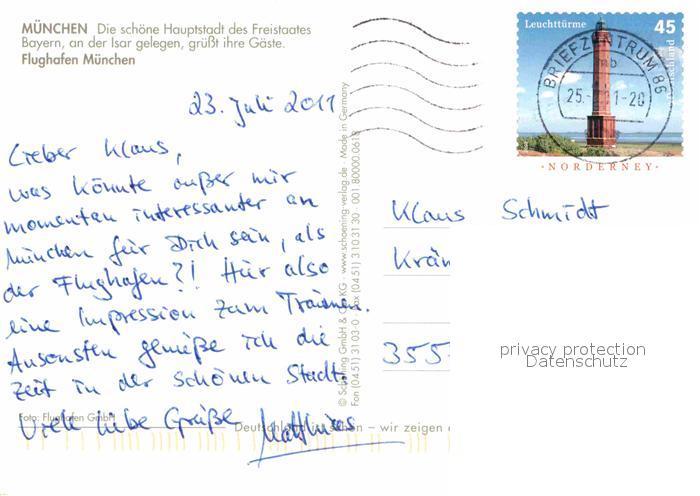 MÜNCHEN Die schöne Hauptstadt des Freistaates
Bayern, an der Isar gelegen, grüßt ihre Gäste.
Flughafen München
23. Juli 2011
Lieber Klaus,
was könnte außer mir
momentan interessanter an
München für Dich sein, als
der Flughafen?! Hier also
eine Impression zum Träumen.
Ansonsten genieße ich die
Zeit in der schönen Stadt.
Viele liebe Grüße
Matthias
Foto: Flughafen GmbH
Deutschland ist schön – wir zeigen
© Schöning GmbH & Co. KG · www.schoening-verlag.de · Made in Germany
Fon (0451) 3103-0 · Fax (0451) 3103130 · 001 80000.0618
Leuchttürme 45
Deutschland
· NORDERNEY ·
BRIEFZENTRUM 86
mb
25. 11-20
Klaus Schmidt
Krän
355
privacy protection
Datenschutz